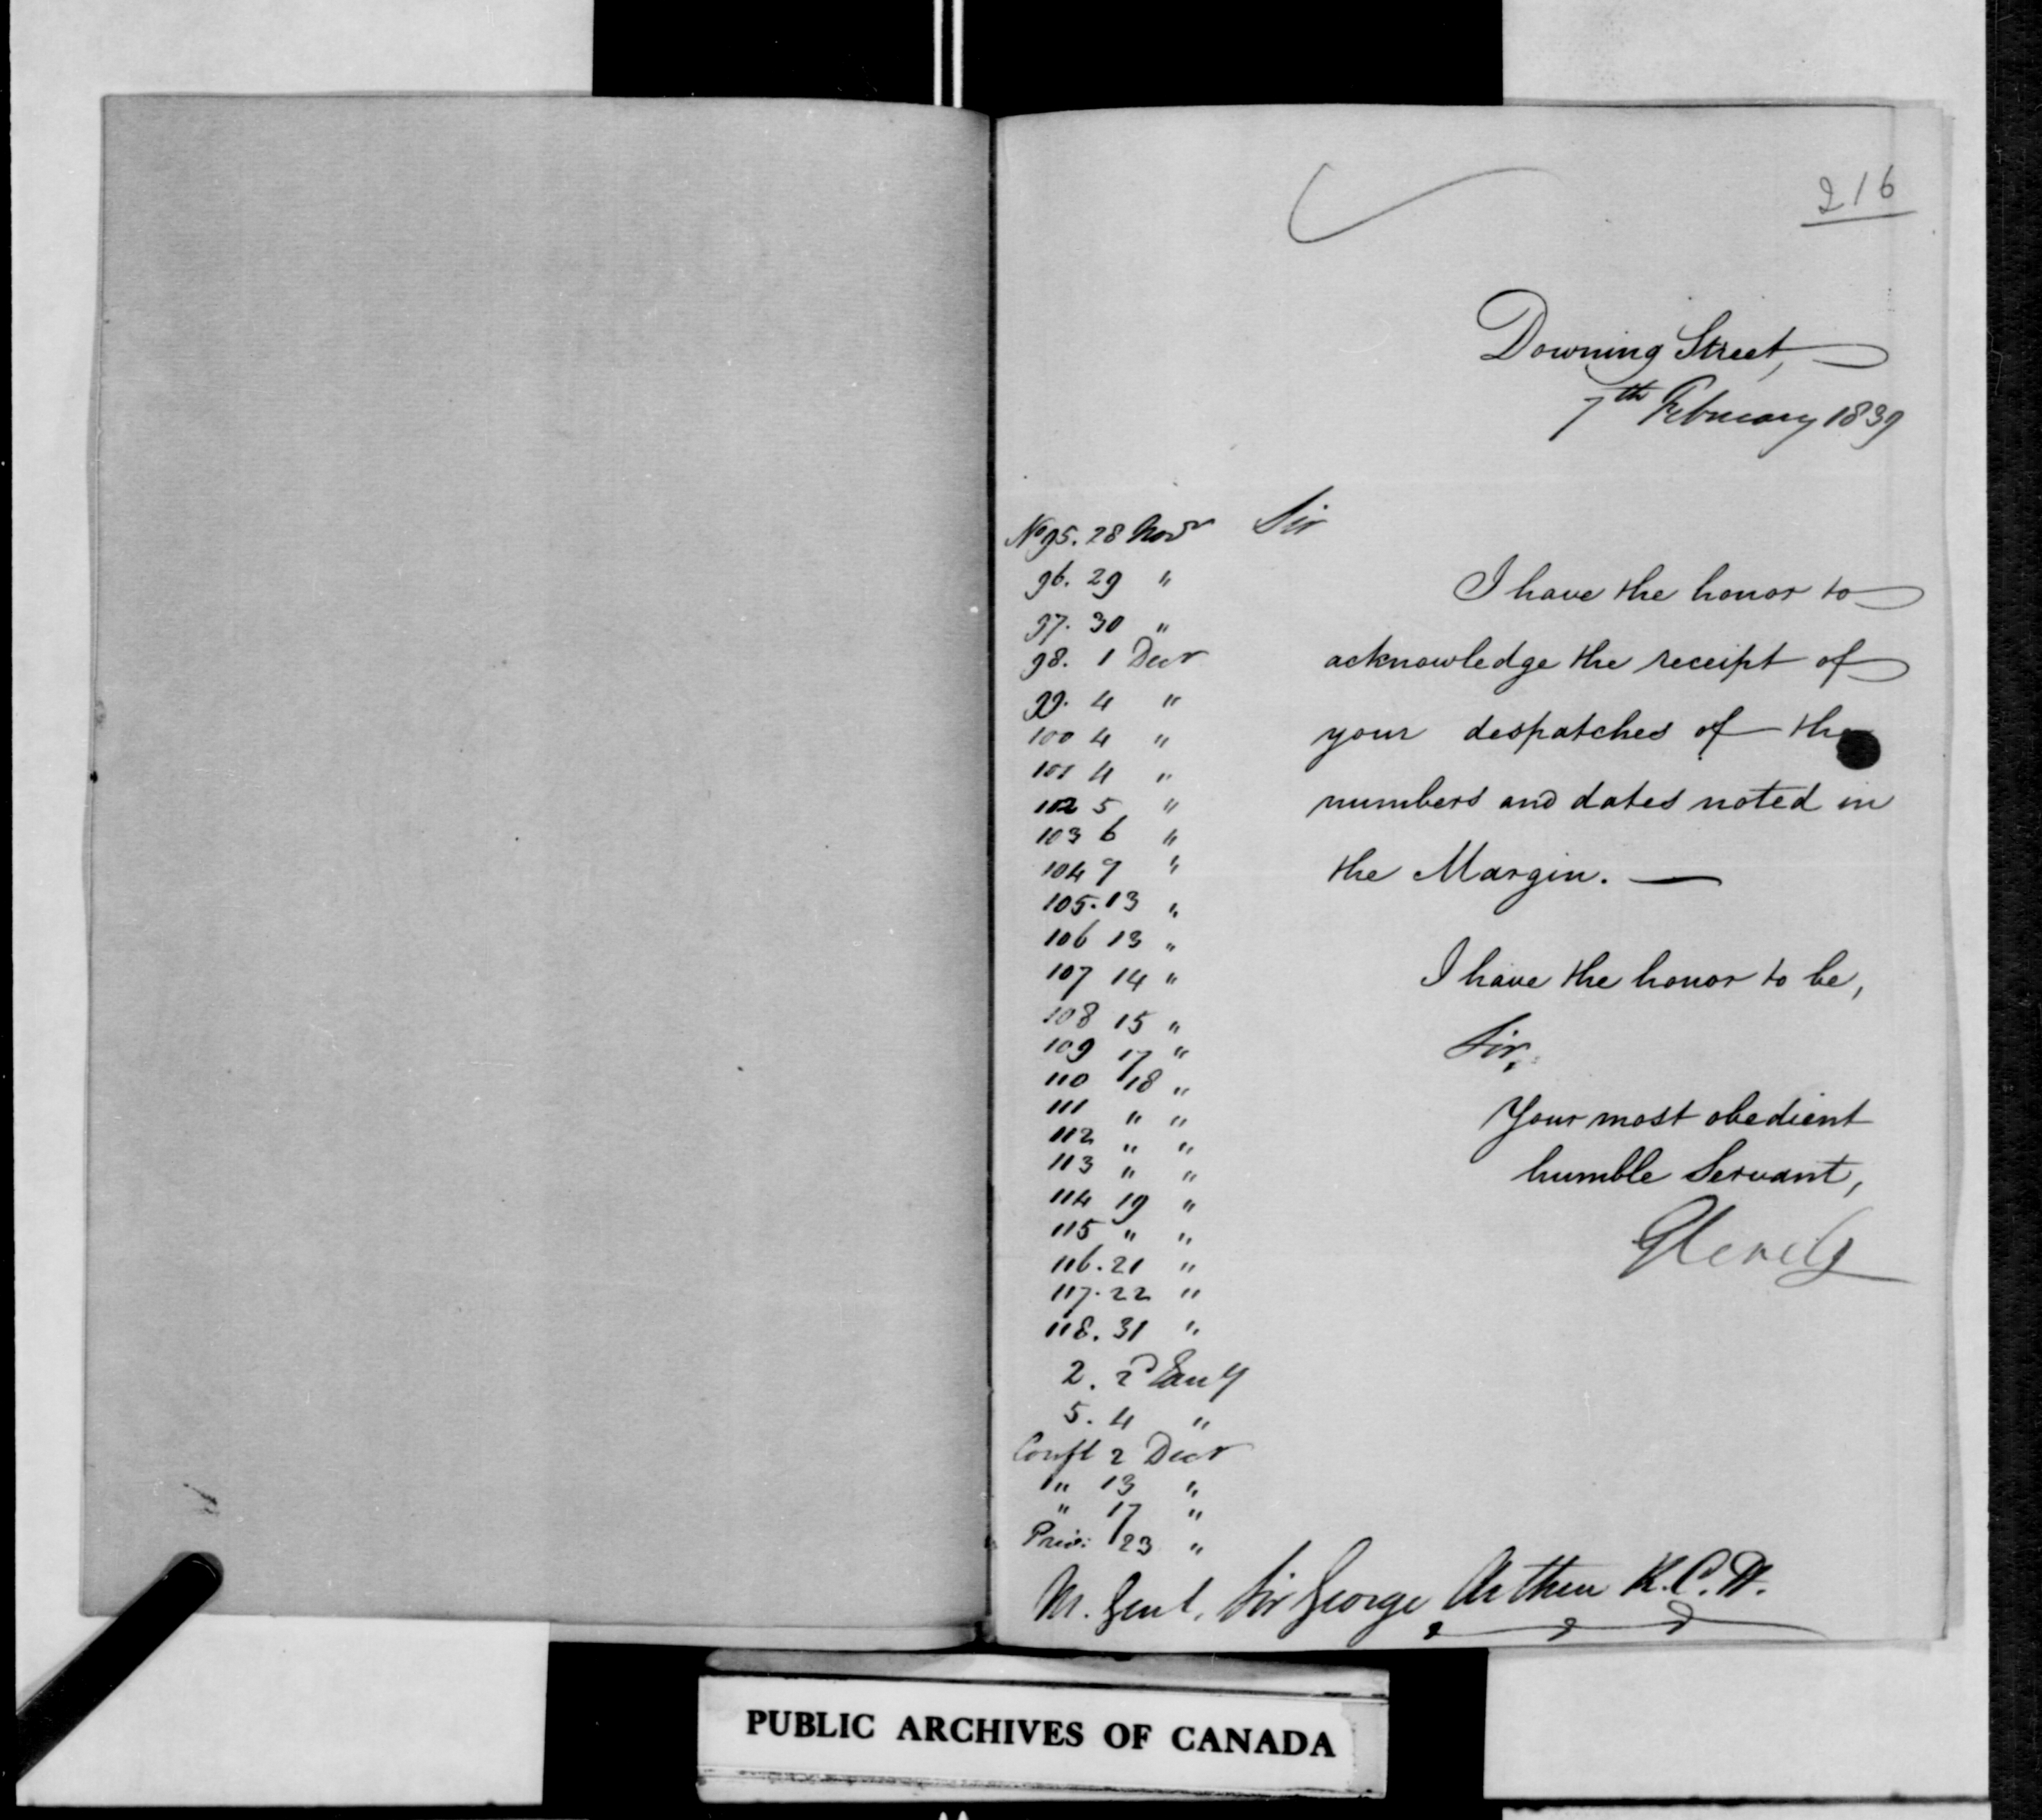 216
Downing Street,
7th February 1839
Sir
No 95. 28 Novr
96. 29 "
97. 30 "
98. 1 Decr
99. 4 "
100 4 "
101 4 "
102 5 "
103 6 "
104 9 "
105. 13 "
106 13 "
107 14 "
108 15 "
109 17 "
110 18 "
111 " "
112 " "
113 " "
114 19 "
115 " "
116. 21 "
117. 22 "
118. 31 "
2. 2 Jany
5. 4 "
Confl 2 Decr
" 13 "
" 17 "
Priv: 23 "
I have the honor to
acknowledge the receipt of
your despatches of the
numbers and dates noted in
the Margin. —
I have the honor to be,
Sir,
Your most obedient
humble Servant,
Glenelg
M. Genl. Sir George Arthur K.C.H.
PUBLIC ARCHIVES OF CANADA